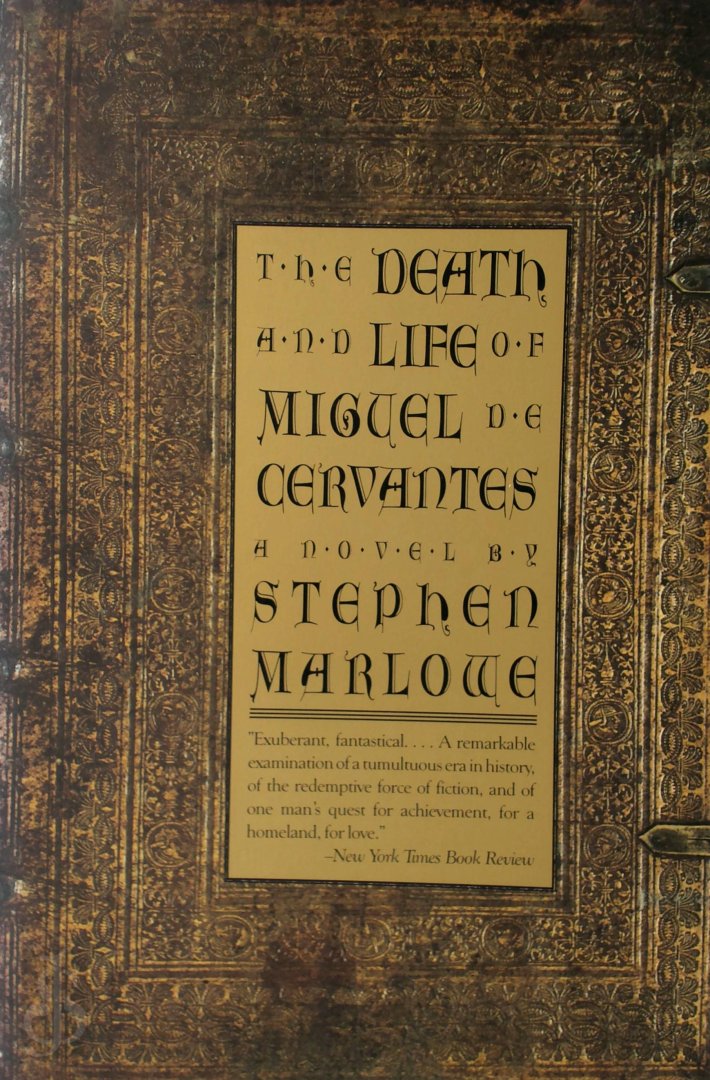 T·H·E DEATH
A·N·D LIFE O·F
MIGUEL D·E
CERVANTES
A N·O·V·E·L B·Y
STEPHEN
MARLOWE
"Exuberant, fantastical. . . . A remarkable
examination of a tumultuous era in history,
of the redemptive force of fiction, and of
one man's quest for achievement, for a
homeland, for love."
–New York Times Book Review